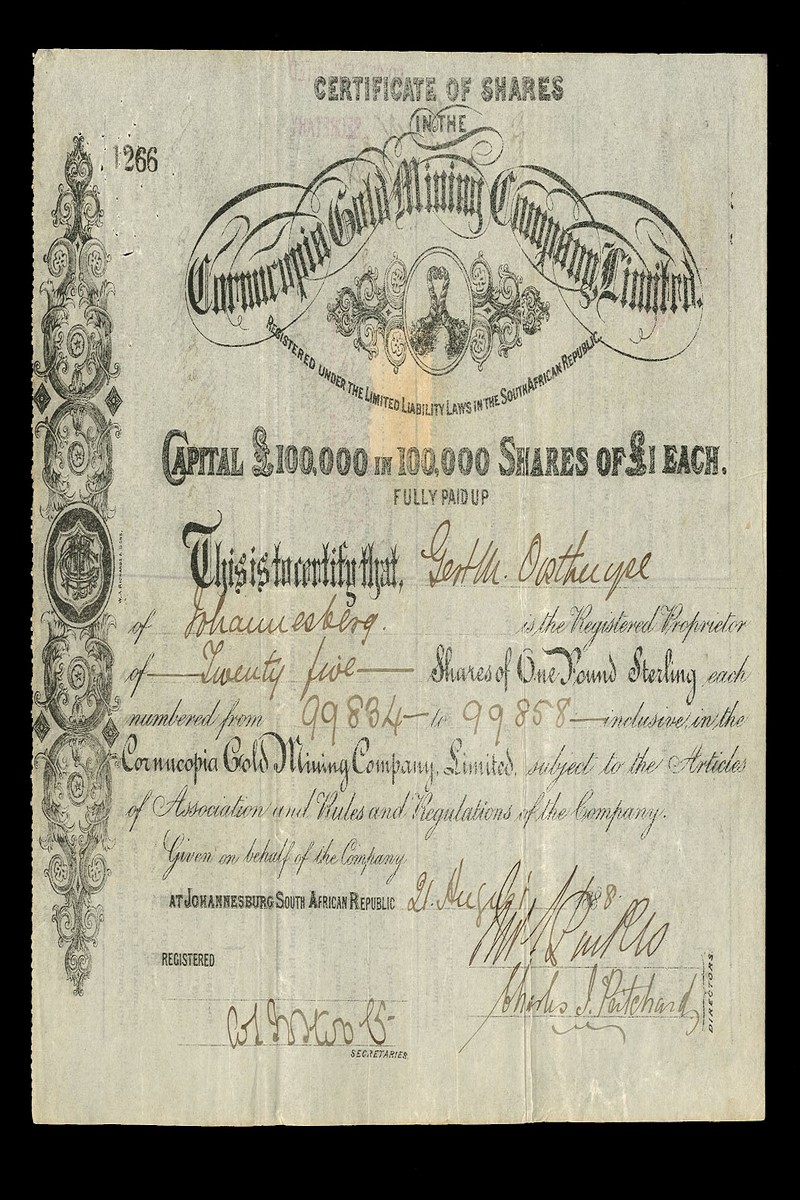 CERTIFICATE OF SHARES
IN THE
1266
Cornucopia Gold Mining Company, Limited.
REGISTERED UNDER THE LIMITED LIABILITY LAWS IN THE SOUTH AFRICAN REPUBLIC.
CAPITAL £100,000 IN 100,000 SHARES OF £1 EACH.
FULLY PAID UP
This is to certify that, Gert M. Oosthuyse
of Johannesberg. is the Registered Proprietor
of Twenty five Shares of One Pound Sterling each
numbered from 99834 to 99858 inclusive, in the
Cornucopia Gold Mining Company, Limited, subject to the Articles
of Association and Rules and Regulations of the Company.
Given on behalf of the Company
AT JOHANNESBURG SOUTH AFRICAN REPUBLIC 21. August 1888.
REGISTERED
Charles J. Pritchard
DIRECTORS
SECRETARIES.